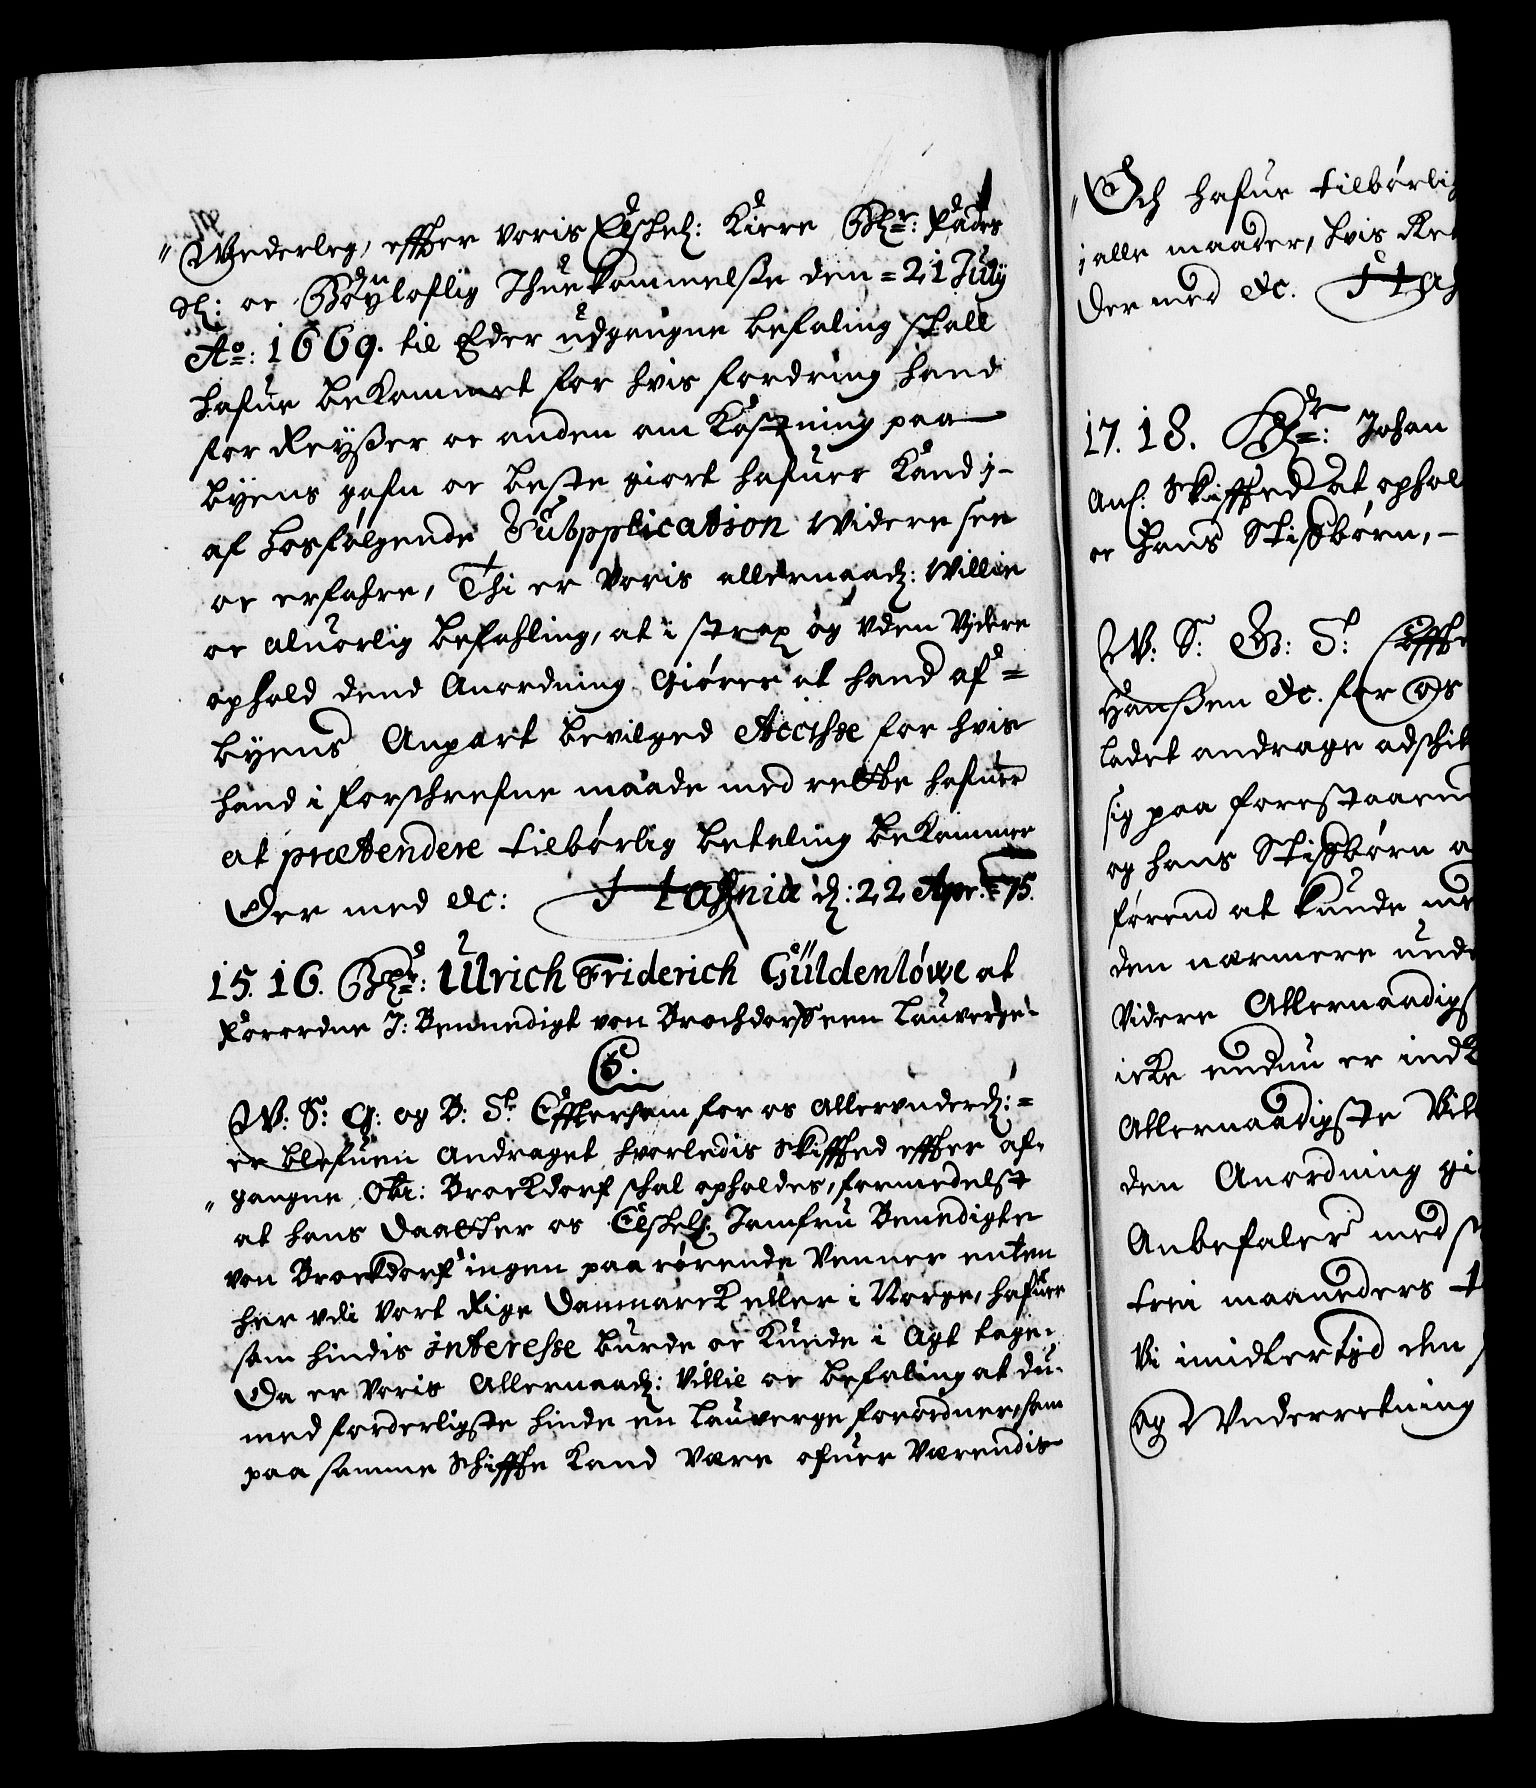 Wederleg, effter voris Elskel: Kiere Hr: Faders
Sl: oc Høyloflig Ihuekommelße den = 21 July
Ao: 1669. til Eder udgangne befaling skall
hafue bekommet for hvis fordring hand
for Reyßer oc anden om Kostning paa
byens gafn oc beste giort hafuer Kand i
af hosfølgende Supplication Widere see
oc erfahre, Thi er Voris allernaad: Willie
oc aluorlig befahling, at i strax og Uden Vidre
ophold dend Anordning Giører at hand af =
byens Anpart bevilged Accisse for hvis
hand i forschrefne maade med rette hafuer
at prætendere tilbørlig betaling bekommer
Der med &c: Hafniæ d: 22 Apr: = 75.
15. 16. Hr: Ulrich Friderich Güldenløwe at
Forordne J: Bennedigt von Brochdorff een Lauverge
C5.
W: S: G: og B: St Efftersom for os Allerunderd: =
er blefuen Andraget hvorledis Skiffted effter af-
gangne Obr: Brockdorf schal opholdes, formedelst
at hans Daatter os Elskel: Jomfru Benedigte
von Brockdorf ingen paarørende Venner enten
her udi Vort Rige Danmarck eller i Norge, hafuer
som hindis interesse burde oc kunde i Agt tage.
Da er Voris Allernaad: Villie oc befaling at du
med forderligste hinde en Lauverge forordner, som
paa samme Schiffte kand være ofuer Værendis
Och hafue tilbørlig
i alle maader, hvis Re
Der med &c. Haf
17. 18. Hr: Johan
Anl: Skifftet at ophol
oc hans Stifbørn,
W: S: G: S: Effte
Hanßen &c. for Os
ladet andrage adschil
sig paa forestaaen
og hans Stifbørn a
førend at kunde me
den nærmere unde
Videre Allernaadigs
icke endnu er indk
Allernaadigste Vil
den Anordning gi
Anbefaler med s
trei maaneders t
Vi imidlertid den
og Underretning